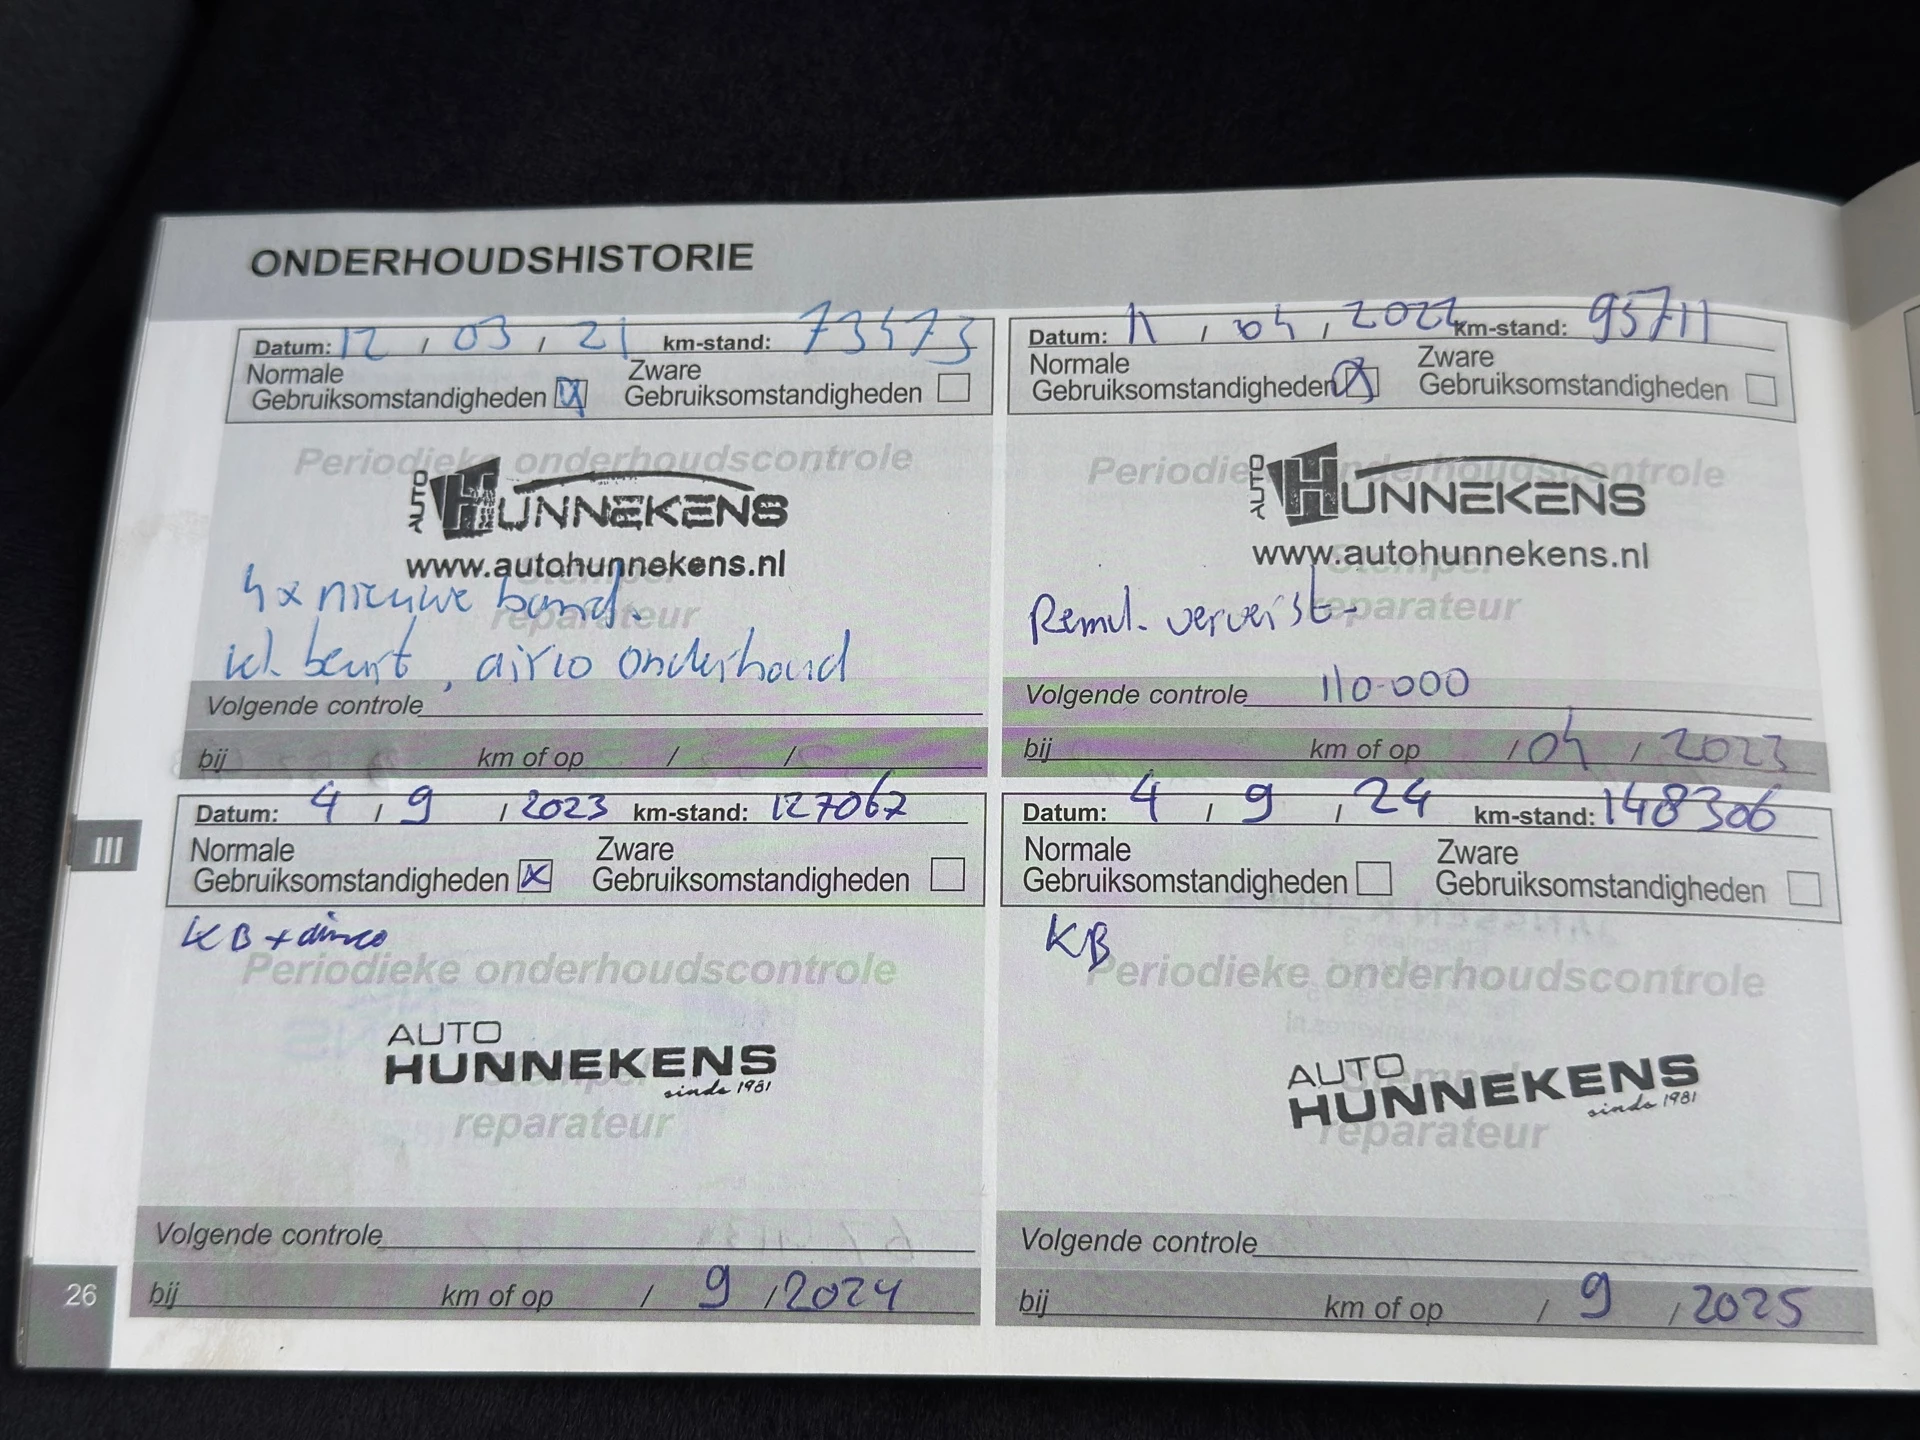 ONDERHOUDSHISTORIE
Datum: 12 / 03 / 21 km-stand: 73473
Normale Gebruiksomstandigheden Zware Gebruiksomstandigheden
Periodieke onderhoudscontrole
AUTO HUNNEKENS
www.autohunnekens.nl
Stempel
4x nieuwe band.
reparateur
kl. beurt, airco onderhoud
Volgende controle
bij km of op / /
Datum: 11 / 04 / 2022 km-stand: 95711
Normale Gebruiksomstandigheden Zware Gebruiksomstandigheden
Periodieke onderhoudscontrole
AUTO HUNNEKENS
www.autohunnekens.nl
Stempel
Remvl. ververst.
reparateur
Volgende controle 110.000
bij km of op / 04 / 2023
Datum: 4 / 9 / 2023 km-stand: 127067
Normale Gebruiksomstandigheden x Zware Gebruiksomstandigheden
KB + airco
Periodieke onderhoudscontrole
AUTO
HUNNEKENS
sinds 1981
Stempel
reparateur
Volgende controle
bij km of op / 9 / 2024
Datum: 4 / 9 / 24 km-stand: 148306
Normale Gebruiksomstandigheden Zware Gebruiksomstandigheden
KB
Periodieke onderhoudscontrole
AUTO
HUNNEKENS
sinds 1981
Stempel
reparateur
Volgende controle
bij km of op / 9 / 2025
III
26